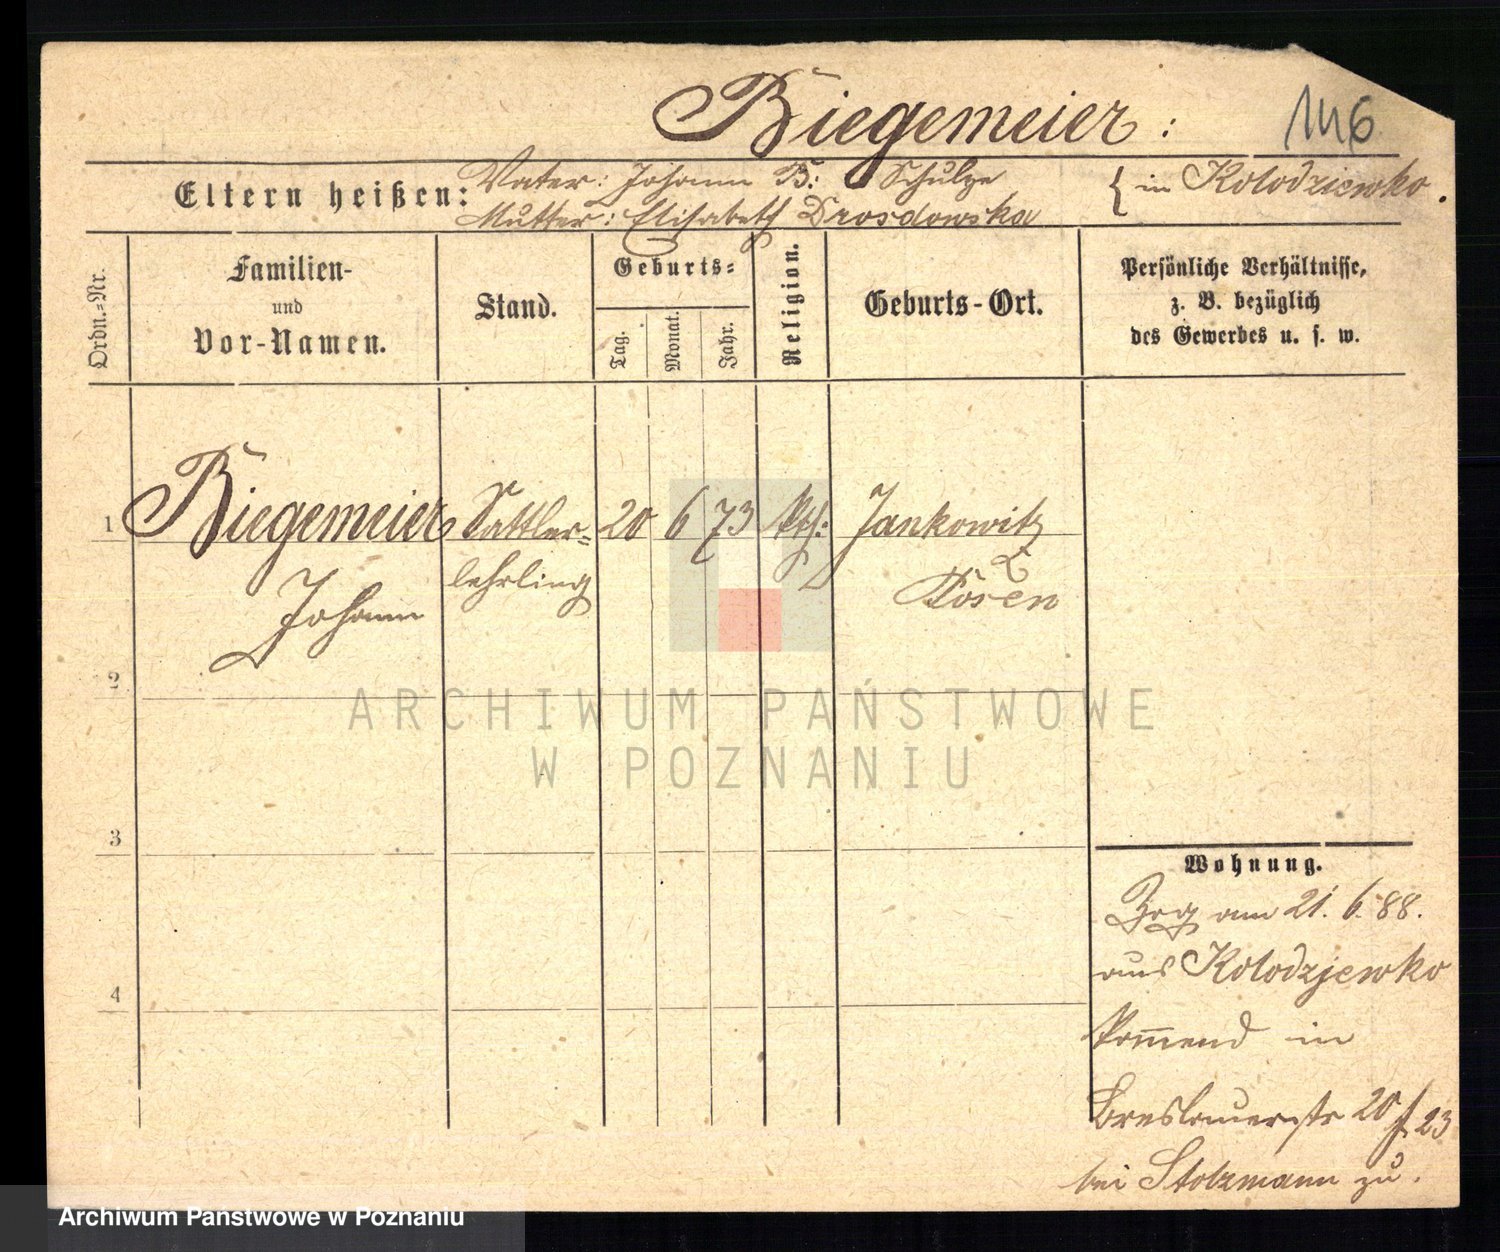 Biegemeier: 146
Eltern heißen: Vater: Johann B: Schulze { in Kolodziewko.
Mutter: Elisabeth Drosdowska
Ordn.-Nr.
Familien-
und
Vor-Namen.
Stand.
Geburts-
Tag.
Monat.
Jahr.
Religion.
Geburts-Ort.
Persönliche Verhältnisse,
z. B. bezüglich
des Gewerbes u. s. w.
1 Biegemeier Sattler= 20 6 73 kth: Jankowitz
Johann lehrling Posen
2
3
4
Wohnung.
Zzg am 21. 6. 88.
aus Kolodzjewko
kommend in
Breslauerstr 20/23
bei Stolzmann zu.
ARCHIWUM PAŃSTWOWE
W POZNANIU
Archiwum Państwowe w Poznaniu